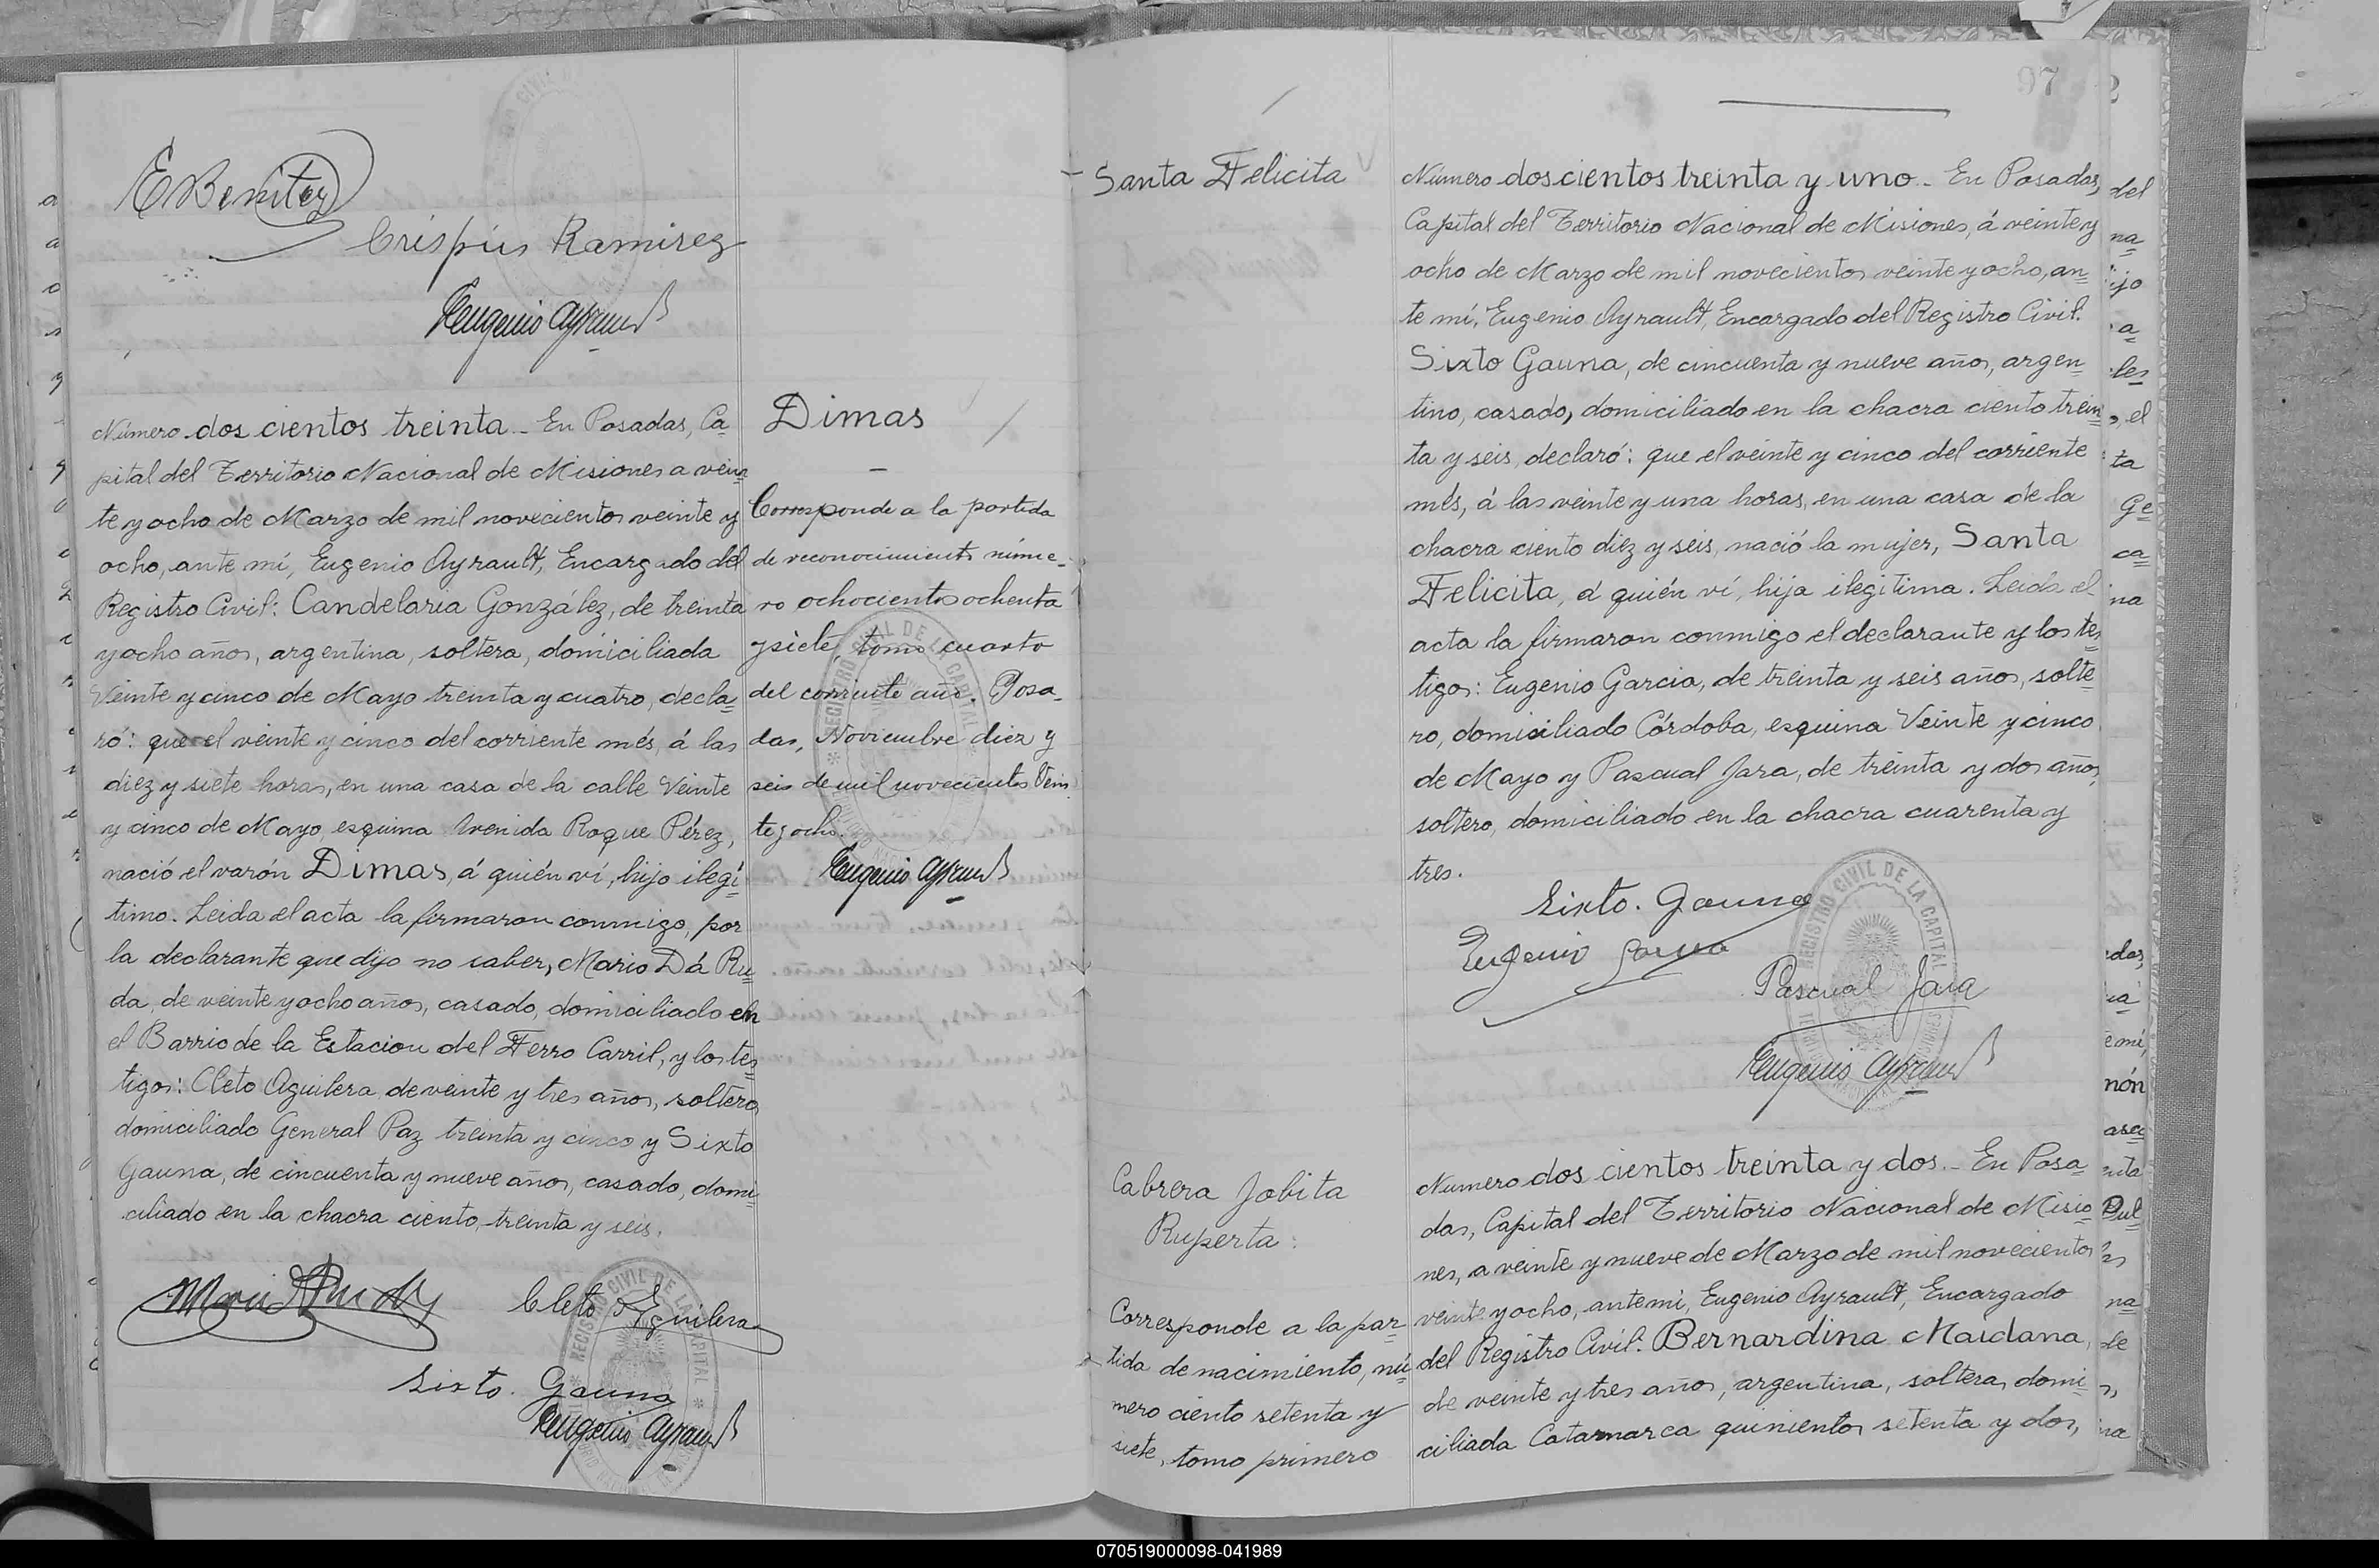 EBenitez
Crispín Ramirez
Eugenio Ayrault
Número dos cientos treinta - En Posadas, Ca-
pital del Territorio Nacional de Misiones a vein
te y ocho de Marzo de mil novecientos veinte y
ocho, ante mí, Eugenio Ayrault, Encargado del
Registro Civil: Candelaria González, de treinta
y ocho años, argentina, soltera, domiciliada
Veinte y cinco de Mayo treinta y cuatro, decla=
ró: que el veinte y cinco del corriente més, á las
diez y siete horas, en una casa de la calle Veinte
y cinco de Mayo esquina Avenida Roque Pérez,
nació el varón Dimas, á quién ví, hijo ilegí=
timo. Leida el acta la firmaron conmigo, por
la declarante que dijo no saber, Mario Dá Ru=
da, de veinte y ocho años, casado, domiciliado en
el Barrio de la Estacion del Ferro Carril, y los tes=
tigos: Cleto Aguilera, de veinte y tres años, soltero
domiciliado General Paz treinta y cinco y Sixto
Gauna, de cincuenta y nueve años, casado, domi=
ciliado en la chacra ciento treinta y seis.
Cleto Aguilera
Sixto. Gauna
Eugenio Ayrault
Dimas
Corresponde a la partida
de reconocimiento núme-
ro ochocientos ochenta
y siete, tomo cuarto
del corriente año. Posa-
das, Noviembre diez y
seis de mil novecientos vein
te y ocho.
Eugenio Ayrault
97
Santa Felicita
Número dos cientos treinta y uno - En Posadas,
Capital del Territorio Nacional de Misiones, á veinte y
ocho de Marzo de mil novecientos veinte y ocho, an=
te mí, Eugenio Ayrault, Encargado del Registro Civil.
Sixto Gauna, de cincuenta y nueve años, argen=
tino, casado, domiciliado en la chacra ciento trein=
ta y seis, declaró: que el veinte y cinco del corriente
més, á las veinte y una horas, en una casa de la
chacra ciento diez y seis, nació la mujer, Santa
Felicita, á quién ví, hija ilegitima. Leida el
acta la firmaron conmigo el declarante y los tes=
tigos: Eugenio Garcia, de treinta y seis años, solte=
ro, domiciliado Córdoba, esquina Veinte y cinco
de Mayo y Pascual Jara, de treinta y dos años,
soltero, domiciliado en la chacra cuarenta y
tres.
Sixto. Gauna
Eugenio Garcia
Pascual Jara
Eugenio Ayrault
REGISTRO CIVIL DE LA CAPITAL
Cabrera Jobita
Ruperta:
Corresponde a la par=
tida de nacimiento, nú=
mero ciento setenta y
siete, tomo primero
Número dos cientos treinta y dos. - En Posa=
das, Capital del Territorio Nacional de Misio=
nes, a veinte y nueve de Marzo de mil novecientos
veinte y ocho, ante mi, Eugenio Ayrault, Encargado
del Registro Civil: Bernardina Maidana,
de veinte y tres años, argentina, soltera, domi=
ciliada Catamarca quinientos setenta y dos,
070519000098-041989